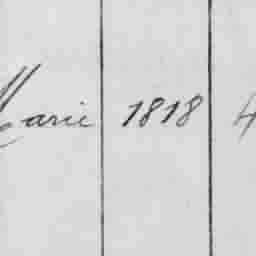 Marie 1818 4